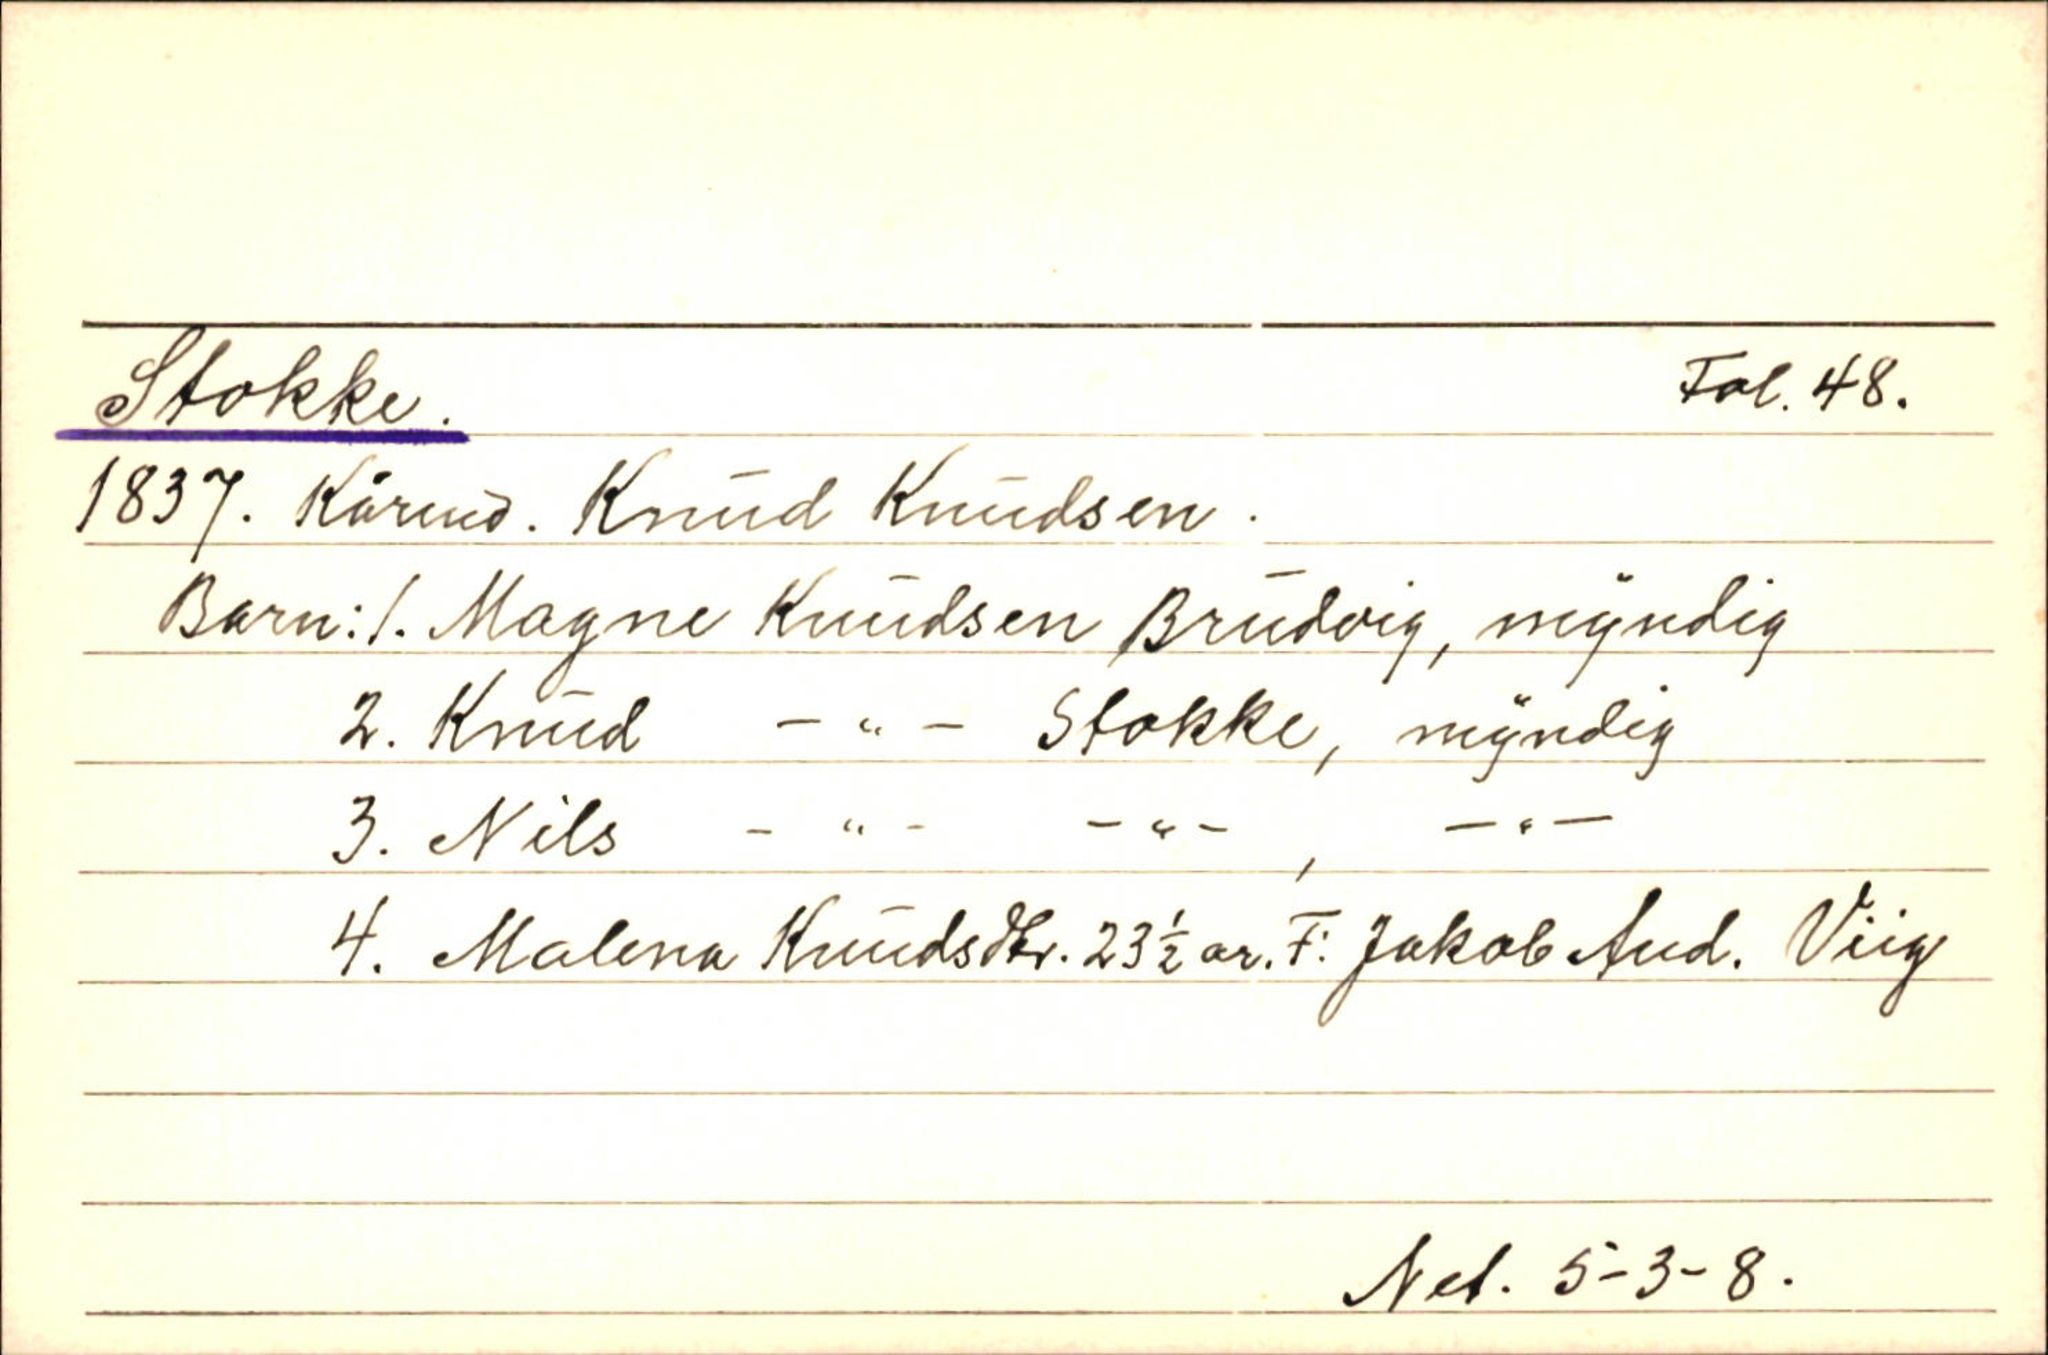 Stokke. Fol. 48.
1837. Kårmd. Knud Knudsen.
Barn: 1. Magne Knudsen Brudvig, myndig
2. Knud - " - Stokke, myndig
3. Nils - " - - " -, - " -
4. Malena Knudsdtr. 23½ år. F: Jakob And. Viig
Net. 5-3-8.